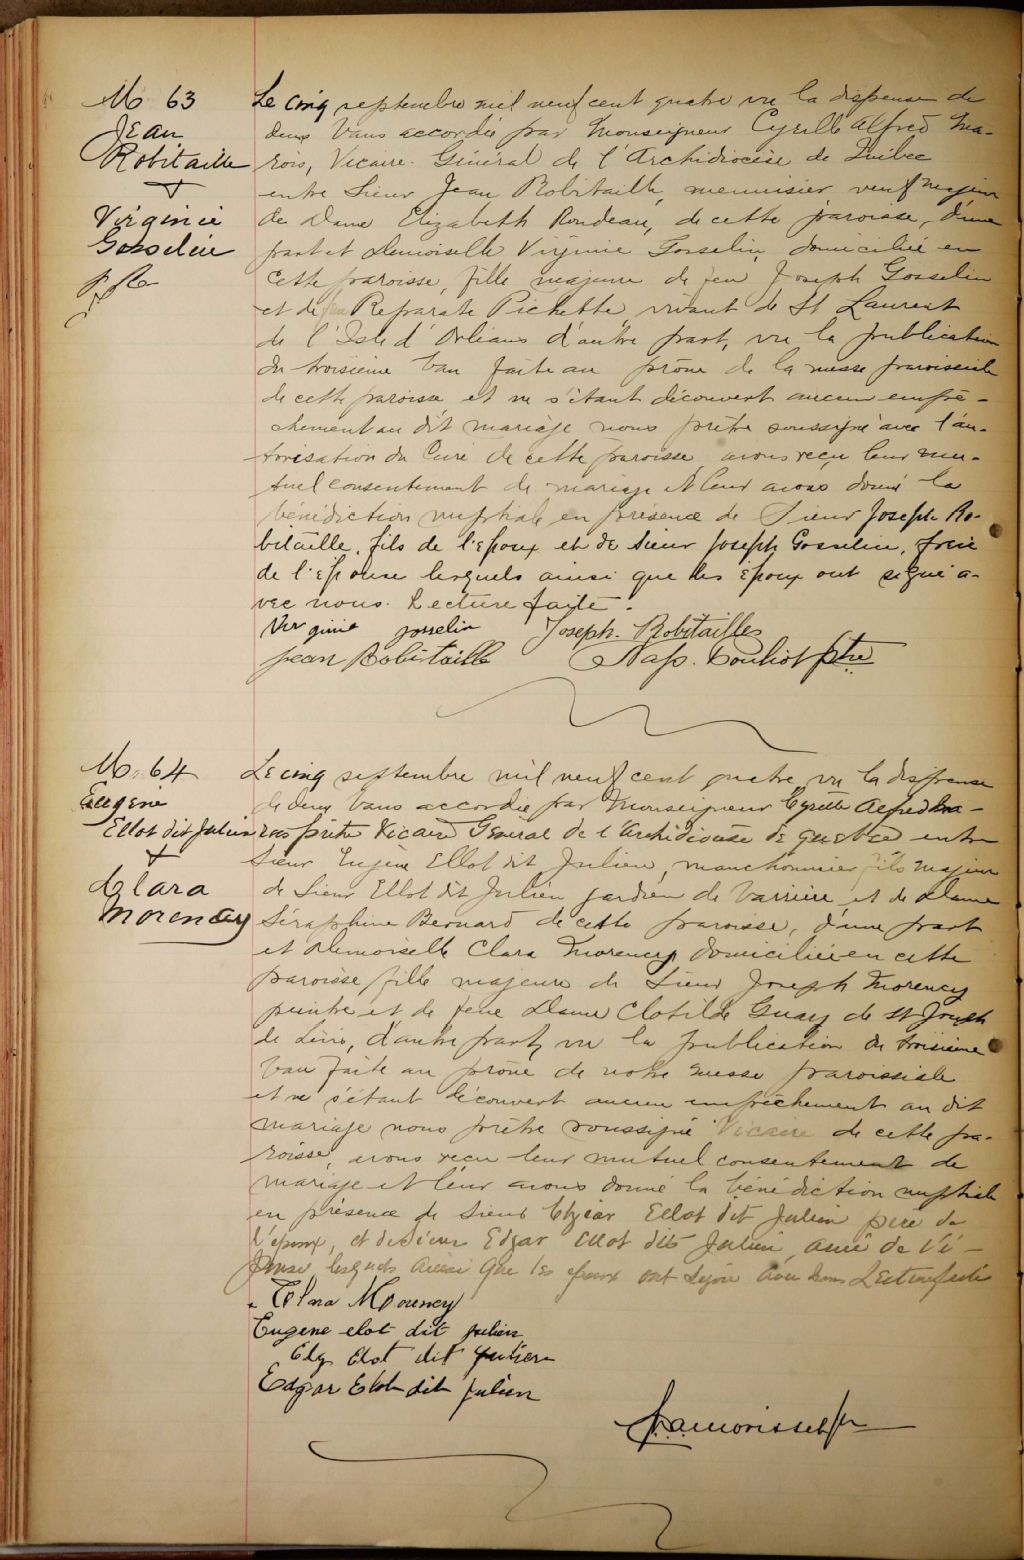 M 63
Jean
Robitaille
&
Virginie
Gosselin
Le cinq septembre mil neuf cent quatre vu la dispense de
deux bans accordée par Monseigneur Cyrille Alfred Ma-
rois, Vicaire Général de l'Archidiocèse de Québec
entre Sieur Jean Robitaille, menuisier veuf majeur
de Dame Elizabeth Rondeau, de cette paroisse, d'une
part et Demoiselle Virginie Gosselin, domiciliée en
cette paroisse, fille majeure de feu Joseph Gosselin
et de Reparate Pichette vivant de St Laurent
de l'Isle d'Orléans d'autre part, vu la publication
du troisième ban faite au prône de la messe paroissiale
de cette paroisse et ne s'étant découvert aucun empê-
chement au dit mariage nous prêtre soussigné avec l'au-
torisation du Curé de cette paroisse avons reçu leur mu-
tuel consentement de mariage et leur avons donné la
bénédiction nuptiale en présence de Sieur Joseph Ro-
bitaille, fils de l'époux et de Sieur Joseph Gosselin, frère
de l'épouse lesquels ainsi que les époux ont signé a-
vec nous. Lecture faite.
Virginie Josselin Joseph Robitaille
Jean Robitaille Nap. Pouliot ptre
M. 64
Eugène
Ellot dit Julien
&
Clara
Morency
Le cinq septembre mil neuf cent quatre, vu la dispense
de deux bans accordée par Monseigneur Cyrille Alfred Ma-
rois prêtre Vicaire Général de l'Archidiocèse de Québec entre
Sieur Eugène Ellot dit Julien, manchonnier fils majeur
de Sieur Ellot dit Julien gardien de barrière et de Dame
Séraphine Bernard de cette paroisse, d'une part
et Demoiselle Clara Morency domiciliée en cette
paroisse fille majeure de Sieur Joseph Morency
peintre et de feue Dame Clotilde Guay de St Joseph
de Lévis, d'autre part, vu la publication du troisième
ban faite au prône de notre messe paroissiale
et ne s'étant découvert aucun empêchement au dit
mariage nous prêtre soussigné Vicaire de cette pa-
roisse, avons reçu leur mutuel consentement de
mariage et leur avons donné la bénédiction nuptiale
en présence de Sieur Elzéar Ellot dit Julien père de
l'époux, et de Sieur Edgar Ellot dit Julien, ami de l'é-
pouse lesquels ainsi que les époux ont signé avec nous Lecture faite
Clara Morency
Eugene elot dit julien
Elz Elot dit Julien
Edgar Elot dit Julien